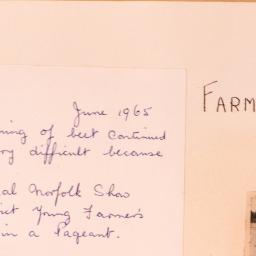 June 1965
ning of beet continued
ry difficult because
al Norfolk Show
ict Young Farmer's
in a Pageant.
FARM